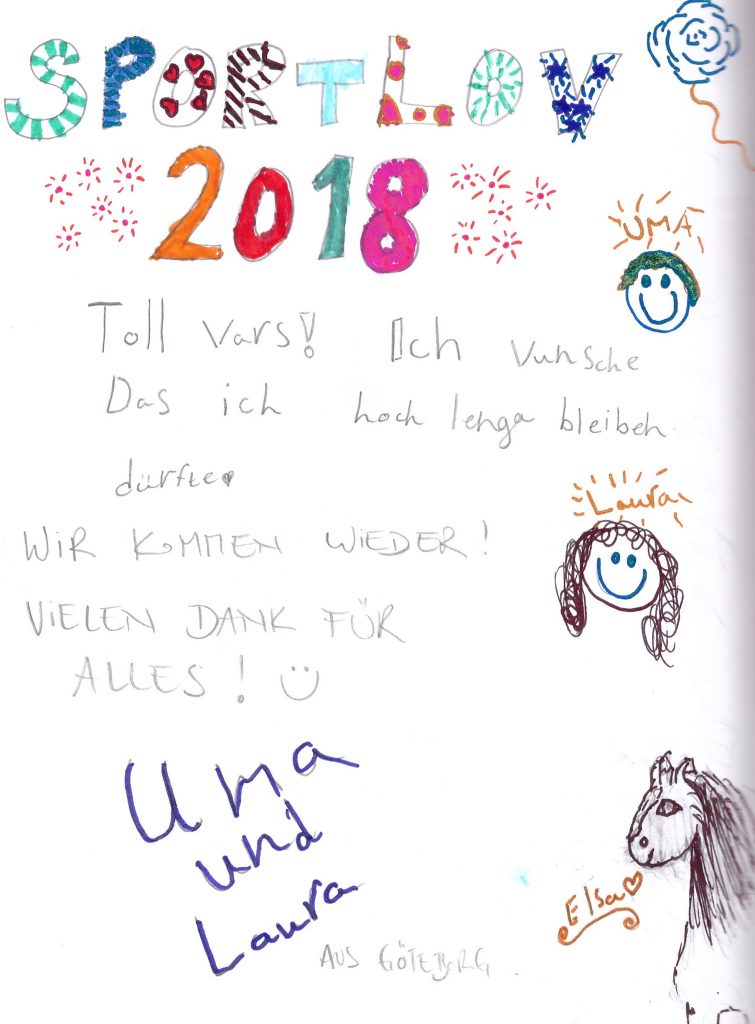 SPORTLOV
2018
UMA
Toll Vars! Ich Vunsche
Das ich noch lenga bleiben
dürfte.
Laura
WIR KOMMEN WIEDER!
VIELEN DANK FÜR
ALLES!
Uma
und
Laura
Elsa
AUS GÖTEBORG